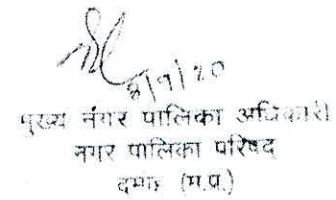 8/9/20
मुख्य नगर पालिका अधिकारी
नगर पालिका परिषद
दमोह (म.प्र.)